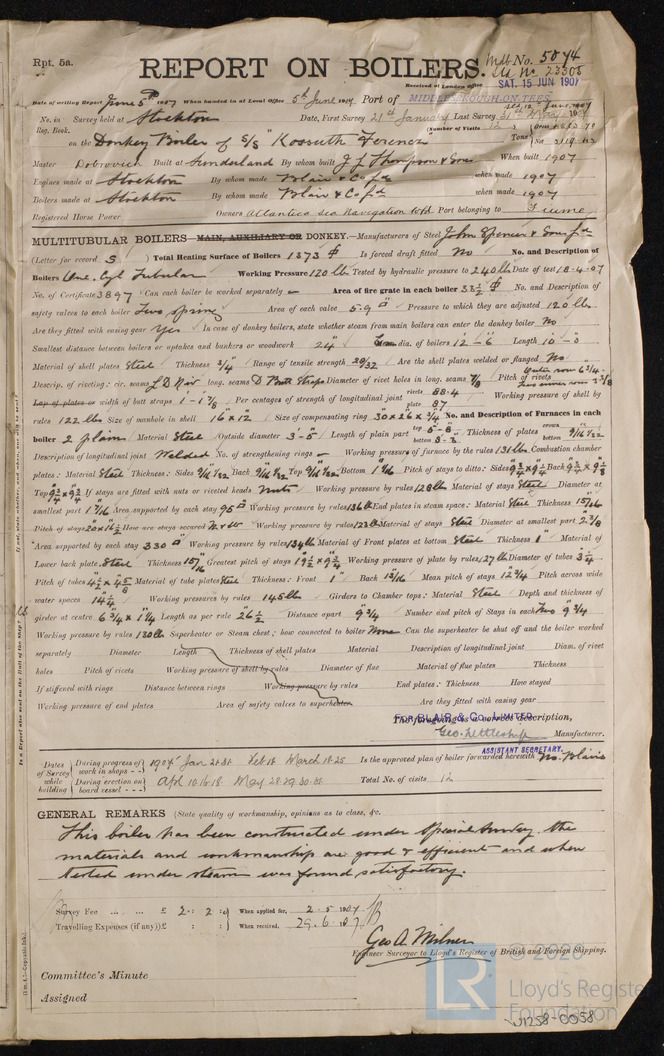 Rpt. 5a.
REPORT ON BOILERS.
No. 5074
No. 23305
Received at London Office SAT. 15 JUN 1907
Date of writing Report June 5th 1907 When handed in at Local Office 5th June 1907 Port of MIDDLESBROUGH-ON-TEES
No. in Survey held at Stockton Date, First Survey 21st January Last Survey 31st May 1907
Reg. Book. (Number of Visits 12)
on the Donkey Boiler of S/S "Kossuth Ferencz" Tons
Master Dobrovich Built at Sunderland By whom built J. L. Thompson & Sons When built 1907
Engines made at Stockton By whom made Blair & Co Ld when made 1907
Boilers made at Stockton By whom made Blair & Co Ld when made 1907
Registered Horse Power Owners Atlantica Sea Navigation Co Ld Port belonging to Fiume
MULTITUBULAR BOILERS MAIN, AUXILIARY OR DONKEY.—Manufacturers of Steel John Spencer & Sons Ld
(Letter for record S) Total Heating Surface of Boilers 1373 Is forced draft fitted No No. and Description of
Boilers One Cyl Tubular Working Pressure 120 lbs Tested by hydraulic pressure to 240 lbs Date of test 18-4-07
No. of Certificate 3897 Can each boiler be worked separately Area of fire grate in each boiler 33½ No. and Description of
safety valves to each boiler Two spring Area of each valve 5.9 Pressure to which they are adjusted 120 lbs
Are they fitted with easing gear Yes In case of donkey boilers, state whether steam from main boilers can enter the donkey boiler No
Smallest distance between boilers or uptakes and bunkers or woodwork 24" dia. of boilers 12'-6" Length 10'-0"
Material of shell plates Steel Thickness 3/4 Range of tensile strength 28/32 Are the shell plates welded or flanged No
Descrip. of riveting: cir. seams L D Riv long. seams D Butt Straps Diameter of rivet holes in long. seams 7/8 Pitch of rivets
Lap of plates or width of butt straps 1'-1 7/8 Per centages of strength of longitudinal joint rivets 88.4 plate 87 Working pressure of shell by
rules 122 lbs Size of manhole in shell 16"x12" Size of compensating ring 30"x26"x3/4" No. and Description of Furnaces in each
boiler 2 plain Material Steel Outside diameter 3'-5" Length of plain part top bottom Thickness of plates crown bottom 9/16 1/32
Description of longitudinal joint Welded No. of strengthening rings Working pressure of furnace by the rules 131 lbs Combustion chamber
plates: Material Steel Thickness: Sides 9/16 1/32 Back 9/16 1/32 Top 9/16 1/32 Bottom Pitch of stays to ditto: Sides 9¼x9¼ Back 9¾x9½
Top 9¾x9¾ If stays are fitted with nuts or riveted heads Nuts Working pressure by rules 128 lbs Material of stays Steel Diameter at
smallest part 1 7/16 Area supported by each stay 95 Working pressure by rules 136 lbs End plates in steam space: Material Steel Thickness 15/16
Pitch of stays 20x16½ How are stays secured N & W Working pressure by rules 123 lbs Material of stays Steel Diameter at smallest part 2 7/8
Area supported by each stay 330 Working pressure by rules 134 lbs Material of Front plates at bottom Steel Thickness 1" Material of
Lower back plate Steel Thickness 15/16 Greatest pitch of stays Working pressure of plate by rules 127 lbs Diameter of tubes 3¼
Pitch of tubes 4½x4 5/8 Material of tube plates Steel Thickness: Front 1" Back 13/16 Mean pitch of stays 12¾ Pitch across wide
water spaces 14¼ Working pressures by rules 145 lbs Girders to Chamber tops: Material Steel Depth and thickness of
girder at centre 6¾x1¼ Length as per rule 26½ Distance apart 9¾ Number and pitch of Stays in each Two 9¾
Working pressure by rules 130 lbs Superheater or Steam chest; how connected to boiler None Can the superheater be shut off and the boiler worked
separately Diameter Length Thickness of shell plates Material Description of longitudinal joint Diam. of rivet
holes Pitch of rivets Working pressure of shell by rules Diameter of flue Material of flue plates Thickness
If stiffened with rings Distance between rings Working pressure by rules End plates: Thickness How stayed
Working pressure of end plates Area of safety valves to superheater Are they fitted with easing gear
The foregoing is a correct description,
FOR BLAIR & CO. LIMITED
Geo. Nettleship Manufacturer.
ASSISTANT SECRETARY.
Dates of Survey while building During progress of work in shops - - 1907 Jan 21.31 Feb 18 March 18.25 Is the approved plan of boiler forwarded herewith No. Blairs
During erection on board vessel - - - Apl 10.16.18 May 28.29.30.31 Total No. of visits 12
GENERAL REMARKS (State quality of workmanship, opinions as to class, &c.
This boiler has been constructed under Special Survey the
materials and workmanship are good & efficient and when
tested under steam was found satisfactory.
Survey Fee ... ... £ 2 : 2 : When applied for, 2-5-1907
Travelling Expenses (if any) £ : : When received, 29.6.1907
Geo A. Milner
Engineer Surveyor to Lloyd's Register of British and Foreign Shipping.
Committee's Minute
Assigned
LR
© 2020
Lloyd's Register
Foundation
W1258-0058